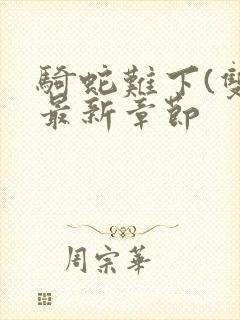 騎蛇難下(雙
最新章節
周宗華